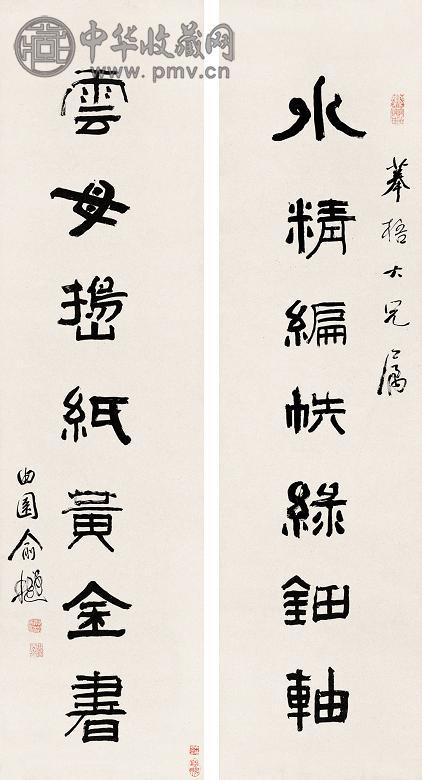 中华收藏网
www.pmv.cn
梧大兄屬
水精編帙綠鈿軸
雲母搗紙黃金書
曲園俞樾